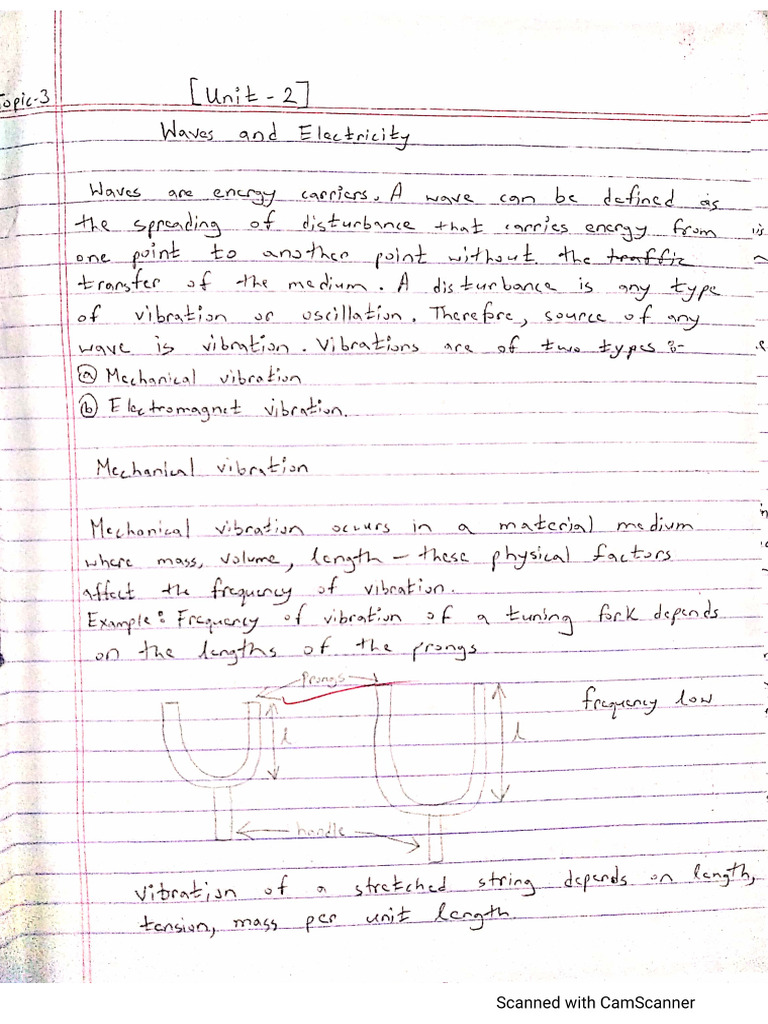 Topic-3
[Unit - 2]
Waves and Electricity
Waves are energy carriers. A wave can be defined as
the spreading of disturbance that carries energy from
one point to another point without the traffic
transfer of the medium. A disturbance is any type
of vibration or oscillation. Therefore, source of any
wave is vibration. Vibrations are of two types :-
(a) Mechanical vibration
(b) Electromagnet vibration.
Mechanical vibration
Mechanical vibration occurs in a material medium
where mass, volume, length - these physical factors
affect the frequency of vibration.
Example: Frequency of vibration of a tuning fork depends
on the lengths of the prongs
Prongs
frequency low
l
l
handle
vibration of a stretched string depends on length,
tension, mass per unit length.
Scanned with CamScanner